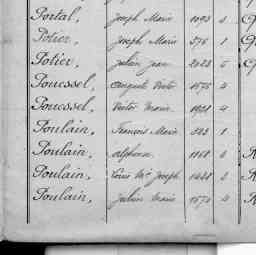 Portal, Joseph Marie 1093 2
Potier, Joseph Marie 376 1
Potier, Julien Jean 2028 5
Poucssel, Auguste Victor 1575 4
Poucssel, Victor Marie 1921 4
Poulain, François Marie 323 1
Poulain, Alphonse 1168 6
Poulain, Louis Mie Joseph 1448 2
Poulain, Julien Marie 1571 4